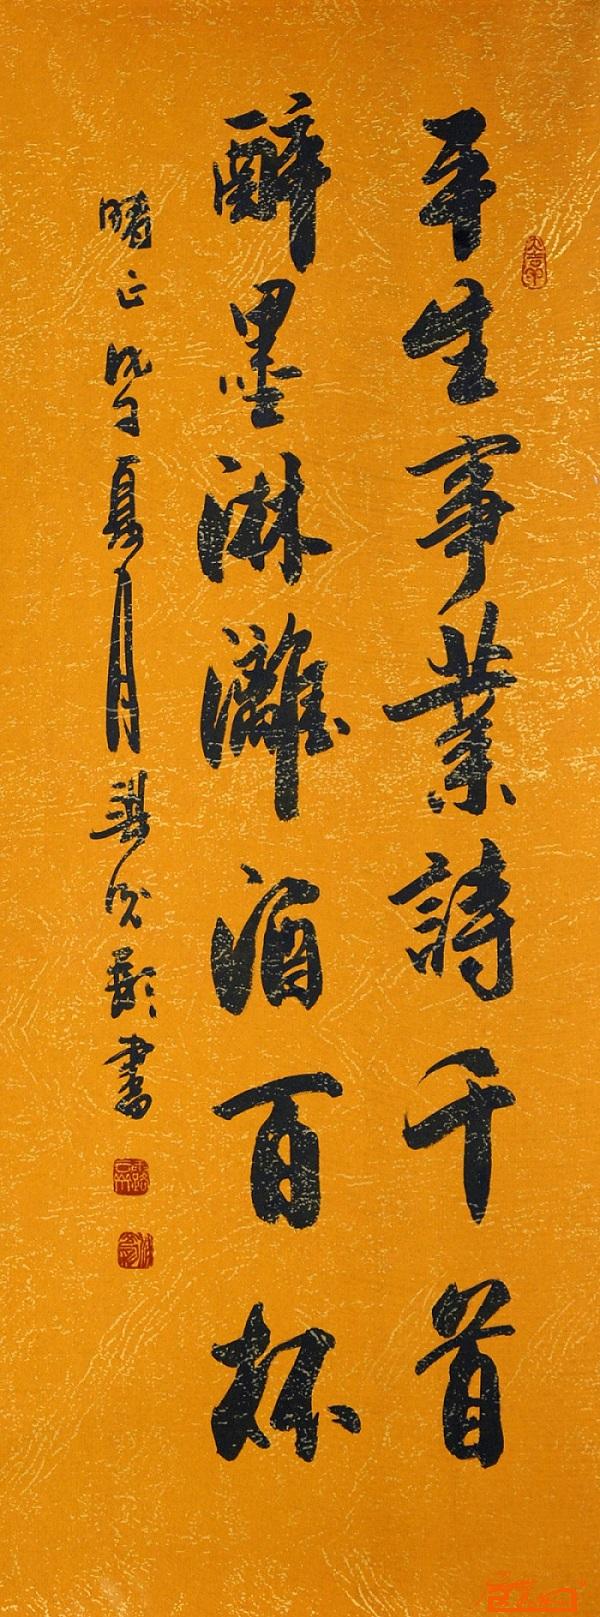 平生事業詩千首
醉墨淋灕酒百杯
晴正 戊子夏月 書